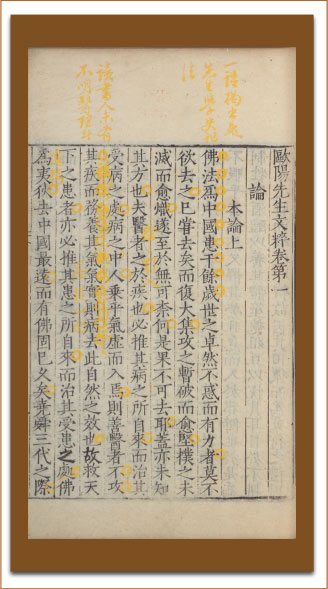 歐陽先生文粹卷第一
論
本論上
佛法爲中國患千餘歲世之卓然不惑而有力者莫不
欲去之巳甞去矣而復大集攻之暫破而愈堅撲之未
滅而愈熾遂至於無可柰何是果不可去耶蓋亦未知
其方也夫醫者之於疾也必推其病之所自來而治其
受病之處病之中人乗乎氣虛而入焉則善醫者不攻
其疾而務養其氣氣實則病去此自然之效也故救天
下之患者亦必推其患之所自來而治其受患之處佛
爲夷狄去中國最逺而有佛固巳久矣堯舜三代之際